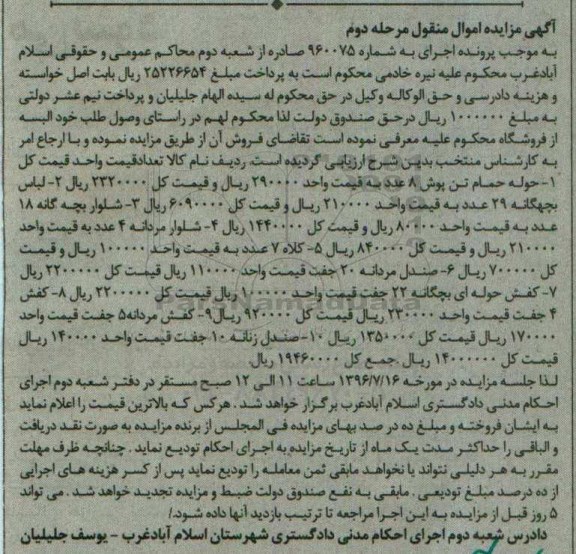 آگهی مزایده اموال منقول مرحله دوم
به موجب پرونده اجرای به شماره ۹۶۰۰۷۵ صادره از شعبه دوم محاکم عمومی و حقوقی اسلام
آبادغرب محکوم علیه نیره خادمی محکوم است به پرداخت مبلغ ۲۵۲۲۶۶۵۴ ریال بابت اصل خواسته
و هزینه دادرسی و حق الوکاله وکیل در حق محکوم له سیده الهام جلیلیان و پرداخت نیم عشر دولتی
به مبلغ ۱۰۰۰۰۰۰ ریال درحق صندوق دولت لذا محکوم لهم در راستای وصول طلب خود البسه
از فروشگاه محکوم علیه معرفی نموده است تقاضای فروش آن از طریق مزایده نموده و با ارجاع امر
به کارشناس منتخب بدین شرح ارزیابی گردیده است. ردیف نام کالا تعدادقیمت واحد قیمت کل
۱-حوله حمام تن پوش ۸ عدد به قیمت واحد ۲۹۰۰۰۰ ریال و قیمت کل ۲۳۲۰۰۰۰ ریال ۲- لباس
بچهگانه ۲۹ عدد به قیمت واحد ۲۱۰۰۰۰ ریال و قیمت کل ۶۰۹۰۰۰۰ ریال ۳- شلوار بچه گانه ۱۸
عدد به قیمت واحد ۸۰۰۰۰ ریال و قیمت کل ۱۴۴۰۰۰۰ ریال ۴- شلوار مردانه ۴ عدد به قیمت واحد
۲۱۰۰۰۰ ریال و قیمت کل ۸۴۰۰۰۰ ریال ۵- کلاه ۷ عدد به قیمت واحد ۱۰۰۰۰۰ ریال و قیمت
کل ۷۰۰۰۰۰ ریال ۶- صندل مردانه ۲۰ جفت قیمت واحد ۱۱۰۰۰۰ ریال قیمت کل ۲۲۰۰۰۰۰ ریال
۷- کفش حوله ای بچگانه ۲۲ جفت قیمت واحد ۱۰۰۰۰۰ ریال قیمت کل ۲۲۰۰۰۰۰ ریال ۸- کفش
۴ جفت قیمت واحد ۲۳۰۰۰۰ ریال قیمت کل ۹۲۰۰۰۰ ریال۹- کفش مردانه۵ جفت قیمت واحد
۱۷۰۰۰۰ ریال قیمت کل ۱۳۵۰۰۰۰ ریال ۱۰- صندل زنانه ۱۰ جفت قیمت واحد ۱۴۰۰۰۰ ریال
قیمت کل ۱۴۰۰۰۰۰۰ ریال .جمع کل ۱۹۴۶۰۰۰۰ ریال
لذا جلسه مزایده در مورخه ۱۳۹۶/۷/۱۶ ساعت ۱۱ الی ۱۲ صبح مستقر در دفتر شعبه دوم اجرای
احکام مدنی دادگستری اسلام آبادغرب برگزار خواهد شد . هرکس که بالاترین قیمت را اعلام نماید
به ایشان فروخته و مبلغ ده در صد بهای مزایده فی المجلس از برنده مزایده به صورت نقد دریافت
و الباقی را حداکثر مدت یک ماه از تاریخ مزایده به اجرای احکام تودیع نماید . چنانچه ظرف مهلت
مقرر به هر دلیلی نتواند یا نخواهد مابقی ثمن معامله را تودیع نماید پس از کسر هزینه های اجرایی
از ده درصد مبلغ تودیعی . مابقی به نفع صندوق دولت ضبط و مزایده تجدید خواهد شد . می تواند
۵ روز قبل از مزایده به این اجرا مراجعه تا ترتیب بازدید آنها داده شود./
دادرس شعبه دوم اجرای احکام مدنی دادگستری شهرستان اسلام آبادغرب - یوسف جلیلیان